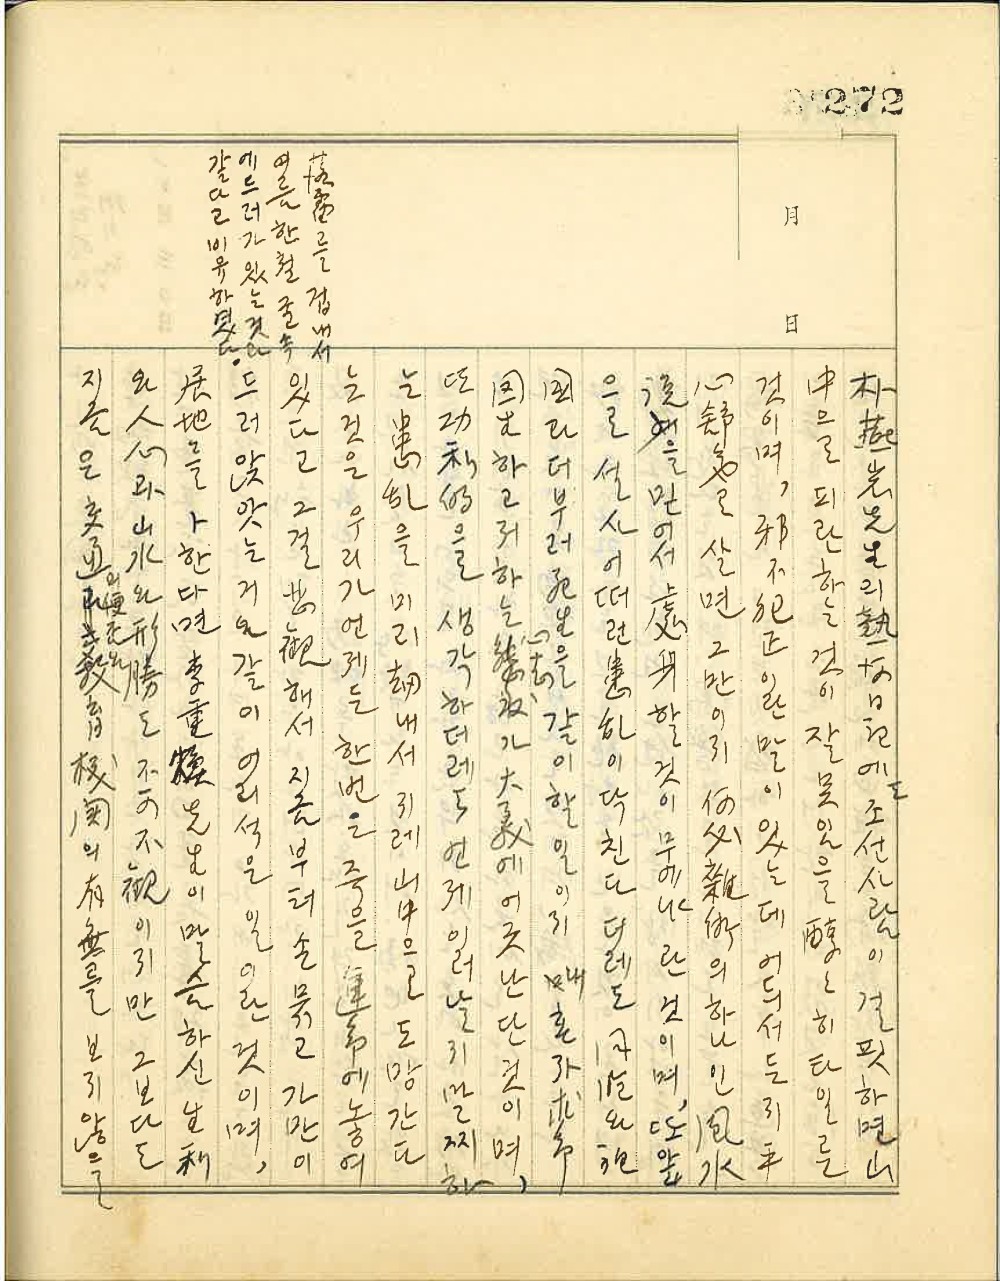 272
月
日
落雷를 겁내서
여름 한철 굴속
에 드러가 있는 것과
갈다고 비유하였다.
朴燕岩先生의 熱河日記에도 조선사람이 걸핏하면 山
中으로 피란하는 것이 잘못임을 醇々히 타일른
것이며, 邪不犯正이란 말이 있는데 어듸서든지
心 살면 그만이지 何必雜術의 하나인 風水
을 믿어서 處身할 것이 무에냐 란 것이며, 또
으로 설사 어떠런 患乱이 닥친다 더레도
더부러 死生을 갈이할 일이지
图生하고저 하는 心志가 大義에 어긋난단 것이며,
또 功利的을 생각하더레도 언제 일러날지 말찌
는 患乱을 미리 劫내서 지레 山中으로 도망간다
는 것은 우리가 언제든 한번은 죽을 運命에 놓여
있다고 그걸 悲觀해서 지금부터 손 묶고 가만이
드러앉앗는 거와 갈이 어리석은 일이란 것이며,
居地를 가한다면 李重煥先生이 말슴하신 生利
와 人心과 山水와 形勝도 不可不觀이지만 그보다도
지금은 交通의 便否와 敎育機関의 有無를 보지 않을